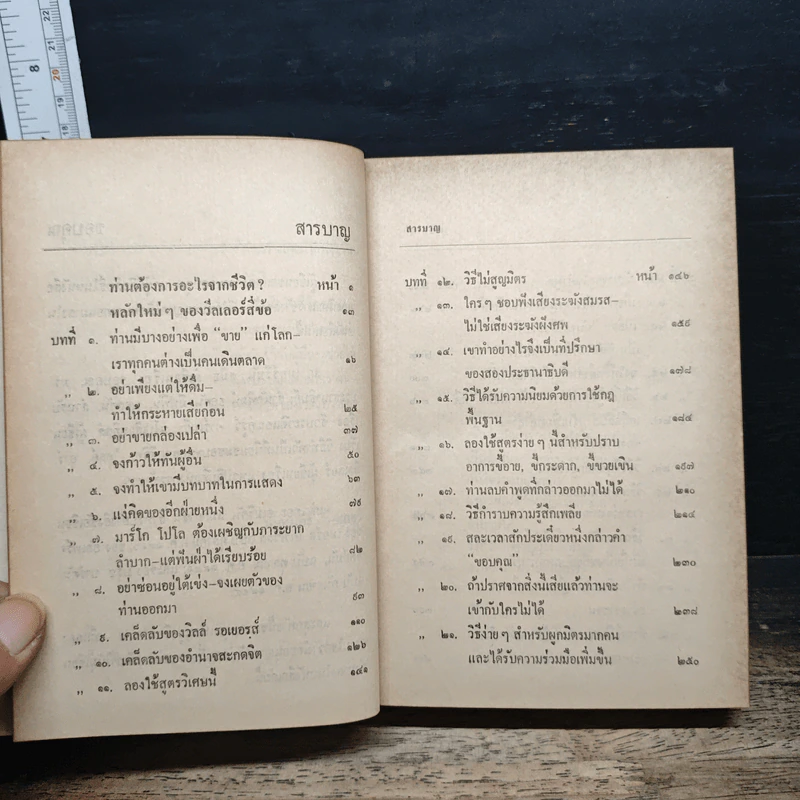 สารบาญ
ท่านต้องการอะไรจากชีวิต? หน้า ๑
หลักใหม่ๆ ของวีลเลอร์สี่ข้อ ๑๓
บทที่ ๑. ท่านมีบางอย่างเพื่อ “ขาย” แก่โลก–
เราทุกคนต่างเป็นคนเดินตลาด ๑๖
„ ๒. อย่าเพียงแต่ให้ดื่ม–
ทำให้กระหายเสียก่อน ๒๕
„ ๓. อย่าขายกล่องเปล่า ๓๗
„ ๔. จงก้าวให้ทันผู้อื่น ๕๐
„ ๕. จงทำให้เขามีบทบาทในการแสดง ๖๓
„ ๖. แง่คิดของอีกฝ่ายหนึ่ง ๗๙
„ ๗. มาร์โก โปโล ต้องเผชิญกับภาระยาก
ลำบาก–แต่ฟันฝ่าได้เรียบร้อย ๘๒
„ ๘. อย่าซ่อนอยู่ใต้เข่ง–จงเผยตัวของ
ท่านออกมา ๙๓
„ ๙. เคล็ดลับของวิลล์ รอเยอรส์ ๑๑๐
„ ๑๐. เคล็ดลับของอำนาจสะกดจิต ๑๒๖
„ ๑๑. ลองใช้สูตรวิเศษนี้ ๑๔๑
สารบาญ
บทที่ ๑๒. วิธีไม่สูญมิตร หน้า ๑๔๖
„ ๑๓. ใครๆ ชอบฟังเสียงระฆังสมรส–
ไม่ใช่เสียงระฆังฝังศพ ๑๕๙
„ ๑๔. เขาทำอย่างไรจึงเป็นที่ปรึกษา
ของสองประธานาธิบดี ๑๗๘
„ ๑๕. วิธีได้รับความนิยมด้วยการใช้กฎ
พื้นฐาน ๑๘๔
„ ๑๖. ลองใช้สูตรง่ายๆ นี้สำหรับปราบ
อาการขี้อาย, ขี้กระดาก, ขี้ขวยเขิน ๑๙๗
„ ๑๗. ท่านลบคำพูดที่กล่าวออกมาไม่ได้ ๒๑๐
„ ๑๘. วิธีกำราบความรู้สึกเพลีย ๒๑๔
„ ๑๙. สละเวลาสักประเดี๋ยวหนึ่งกล่าวคำ
“ขอบคุณ” ๒๓๐
„ ๒๐. ถ้าปราศจากสิ่งนี้เสียแล้วท่านจะ
เข้ากับใครไม่ได้ ๒๓๘
„ ๒๑. วิธีง่ายๆ สำหรับผูกมิตรมากคน
และได้รับความร่วมมือเพิ่มขึ้น ๒๕๐
8
22
21
20
19
18
17